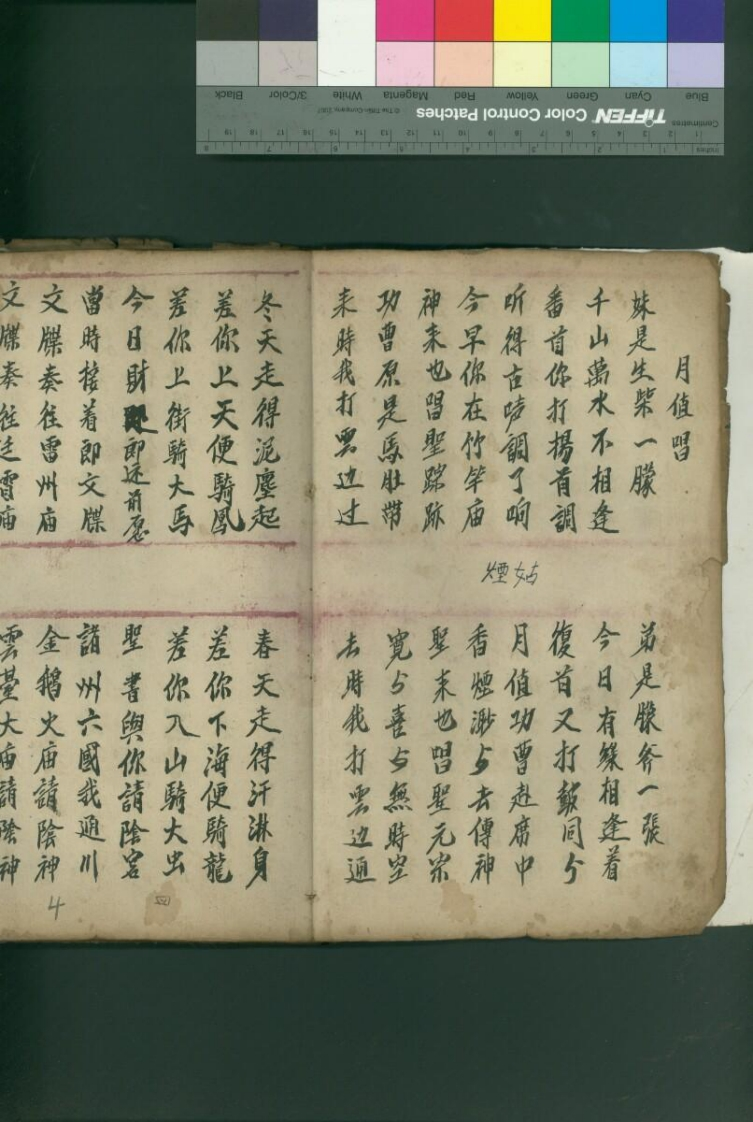 月值唱
妹是生柴一朦
弟是朦斧一張
千山萬水不相逢
今日有緣相逢着
番首你打揚首調
復首又打皷同㕥
听得古唠調了响
月值功曹赴席中
今早你在竹竿庙
香煙渺㕥去傳神
神来也唱聖踪跡
聖来也唱聖元宗
功曹原是馬肚帶
寬㕥喜㕥無時空
来時我打雲边过
去時我打雲边通
煙姑
冬天走得泥塵起
春天走得汗淋身
差你上天便騎鳳
差你下海便騎龍
差你上街騎大馬
差你入山騎大虫
今日財郎还前愿
聖書與你請陰宮
當時接着郎文牒
諸州六國我通川
文牒奏往雷州庙
金鵝火庙請陰神
文牒奏往 雷庙
雲臺大庙請陰神
4
TIFFEN Color Control Patches
© The Tiffen Company, 2007
Centimetres
Inches
Blue
Cyan
Green
Yellow
Red
Magenta
White
3/Color
Black